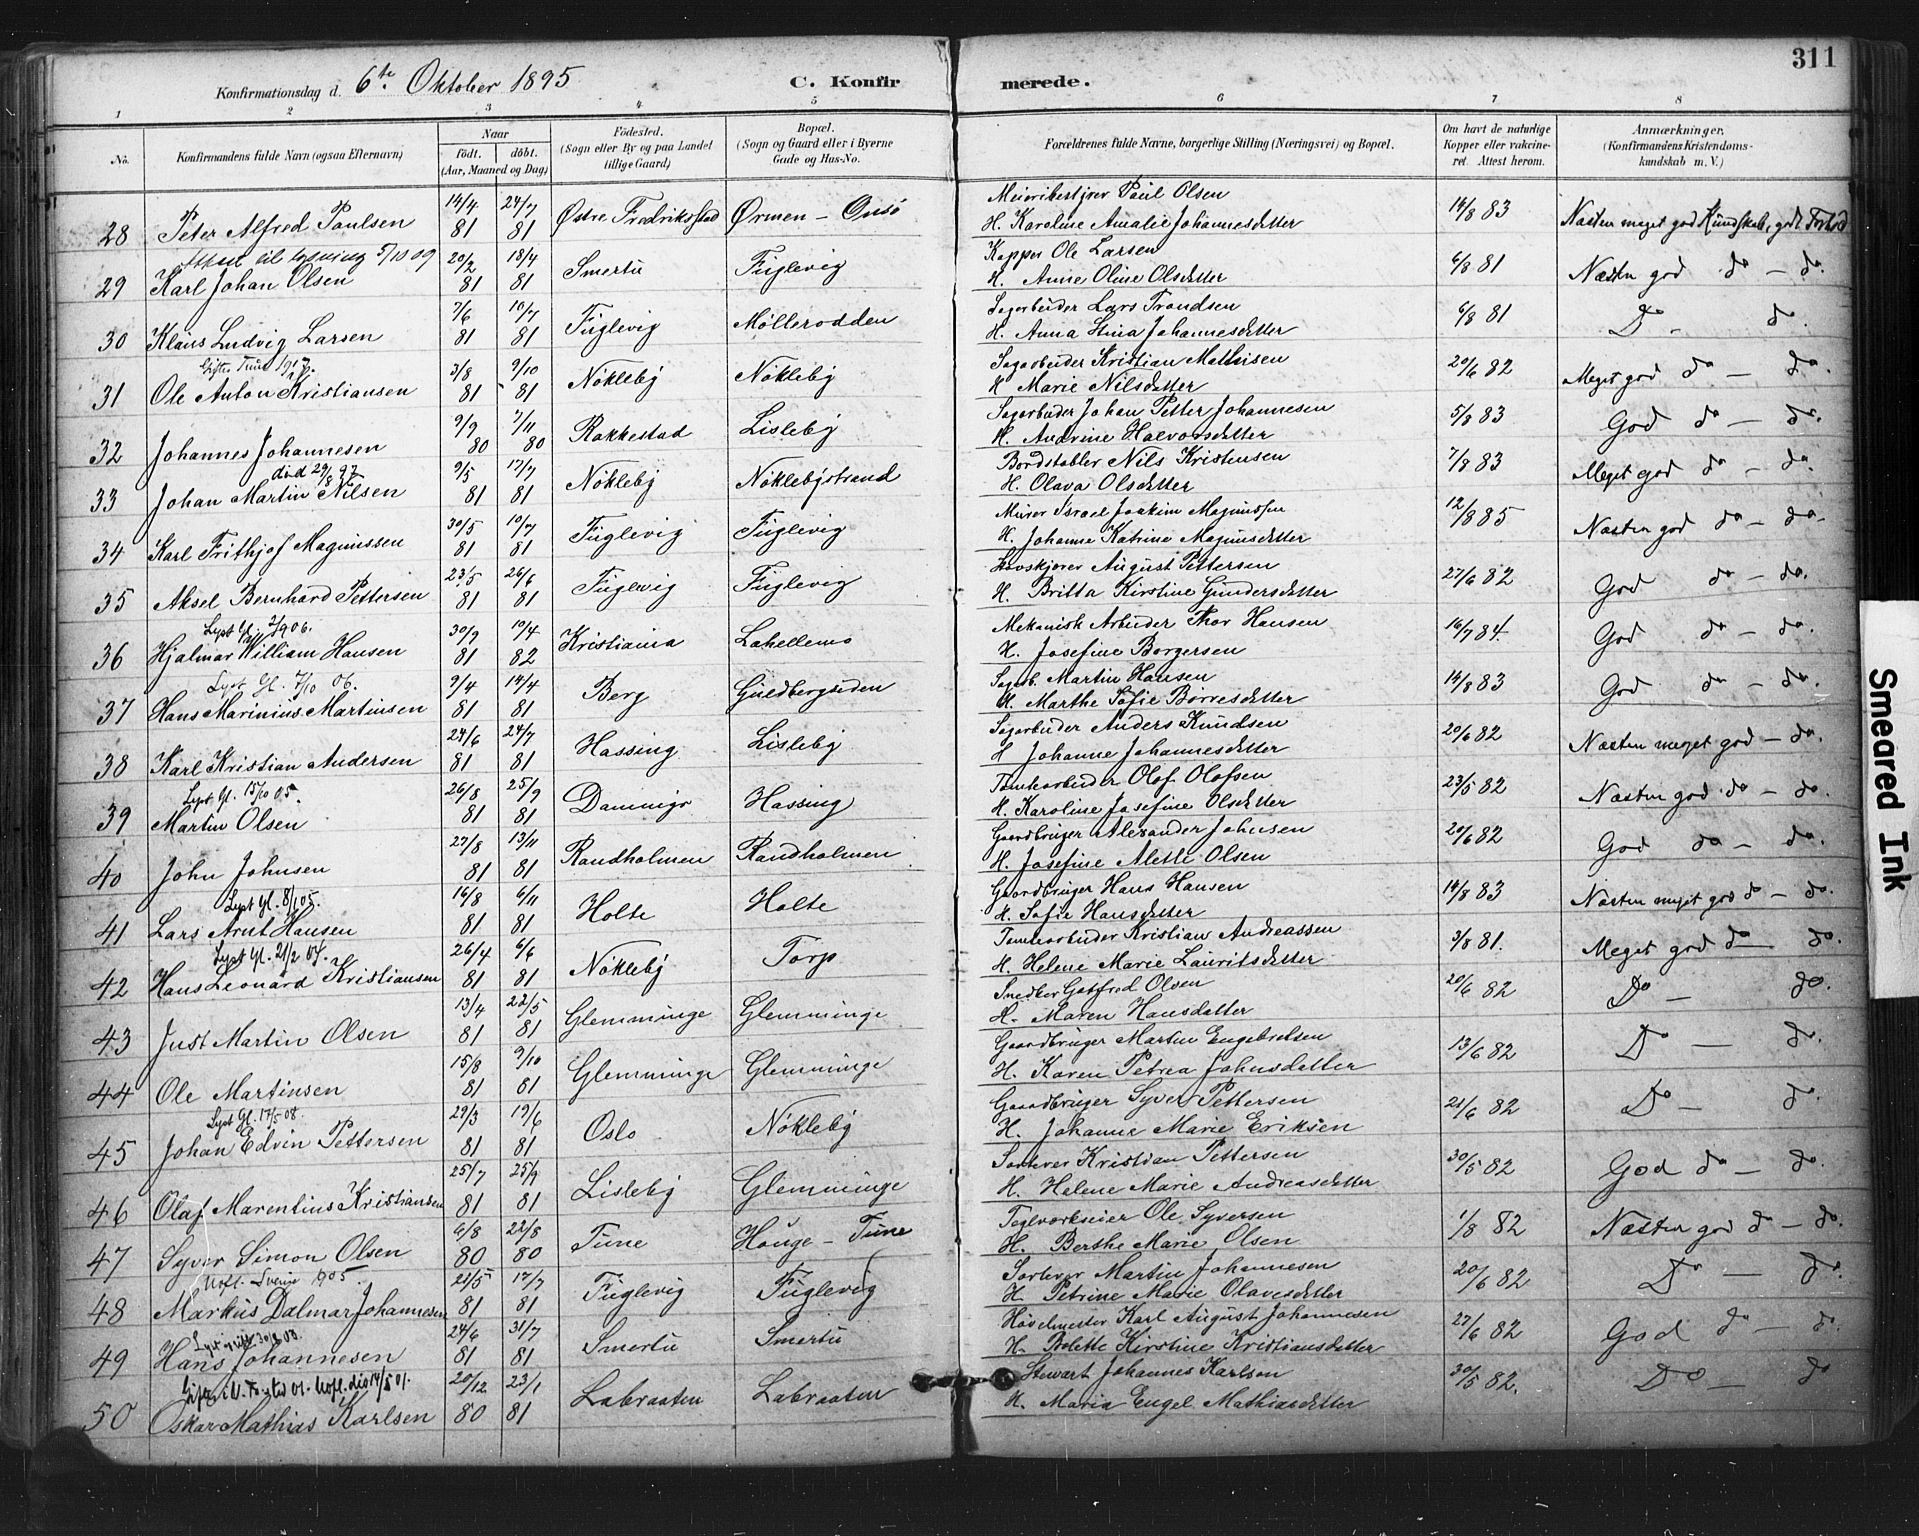 311
Konfirmationsdag d. 6te Oktober 1895. C. Konfirmerede.
1 2 3 4 5 6 7 8
No. Konfirmandens fulde Navn (ogsaa Efternavn) Naar født. døbt. (Aar, Maaned og Dag) Fødested. (Sogn eller By og paa Landet tillige Gaard) Bopæl. (Sogn og Gaard eller i Byerne Gade og Hus-No.) Forældrenes fulde Navne, borgerlige Stilling (Næringsvei) og Bopæl. Om havt de naturlige Kopper eller vakcineret. Attest herom. Anmærkninger. (Konfirmandens Kristendomskundskab m. V.)
28 Peter Alfred Paulsen 14/4 81 24/7 81 Østre Fredriksstad Ørmen - Onsø Paul Olsen
H. Karoline Amalie Johannesdatter 14/8 83 Næsten meget god Kundskab, godt Forhold
Attest til lysning 5/10 09
29 Karl Johan Olsen 20/2 81 18/4 81 Smertu Fuglevig Ole Larsen
H. Anne Oline Olsdatter 6/8 81 Næsten god do - do.
30 Klaus Ludvig Larsen 7/6 81 10/7 81 Fuglevig Møllerodden Sagarbeider Lars Trondsen
H. Anna Stina Johannesdatter 6/8 81 Do - do.
Gift Tune 1917.
31 Ole Anton Kristiansen 3/8 81 9/10 81 Nøkleby Nøkleby Sagarbeider Kristian Mathisen
H Marie Nilsdatter 20/6 82 Meget god do - do.
32 Johannes Johannesen 9/9 80 7/11 80 Rakkestad Lisleby Sagarbeider Johan Petter Johannesen
H. Andrine Halvorsdatter 5/8 83 God do - do.
død 29/8 97
33 Johan Martin Nilsen 9/5 81 17/7 81 Nøkleby Nøklebystrand Bordstabler Nils Kristensen
H. Olava Olsdatter 7/8 83 Meget god do - do.
34 Karl Frithjof Magnussen 30/5 81 10/7 81 Fuglevig Fuglevig Murer Israel Joakim Magnussen
H. Johanne Katrine Magnusdatter 12/8 85 Næsten god do - do.
35 Aksel Bernhard Pettersen 23/5 81 26/6 81 Fuglevig Fuglevig August Pettersen
H. Britta Kirstine Gundersdatter 27/6 82 God do - do.
Lyst Gl. 2/9 06.
36 Hjalmar William Hansen 30/9 81 10/4 82 Kristiania Lahellemo Mekanisk Arbeider Thor Hansen
H. Josefine Borgersen 16/7 84 God do - do.
Lyst Gl. 7/10 06.
37 Hans Marinius Martinsen 9/4 81 14/4 81 Berg Guldbergsiden Sagarb. Martin Hansen
H. Marthe Sofie Børresdatter 14/8 83 God do - do.
38 Karl Kristian Andersen 24/6 81 24/7 81 Hassing Lisleby Sagarbeider Anders Knudsen
H Johanne Johannesdatter 20/6 82 Næsten meget god - do.
Lyst Gl. 15/10 05.
39 Martin Olsen 26/8 81 25/9 81 Dammigr Hassing Tomtearbeider Olof Olofsen
H. Karoline Josefine Olsdatter 23/5 82 Næsten god do - do.
40 John Johnsen 27/8 81 13/11 81 Randholmen Randholmen Gaardbruger Alexander Johnsen
H. Josefine Alette Olsen 20/6 82 God do - do.
Lyst Gl. 8/1 05.
41 Lars Arnt Hansen 16/8 81 6/11 81 Holte Holte Gaardbruger Hans Hansen
H. Sofie Hansdatter 14/8 83 Næsten meget god do - do.
Lyst Gl. 21/2 04.
42 Hans Leonard Kristiansen 26/4 81 6/6 81 Nøkleby Torp Tomtearbeider Kristian Andreassen
H. Helene Marie Lauritsdatter 3/8 81. Meget god do - do.
43 Just Martin Olsen 13/4 81 22/5 81 Glemminge Glemminge Snedker Gotfred Olsen
H. Maren Hansdatter 20/6 82 Do - do.
44 Ole Martinsen 15/8 81 9/10 81 Glemminge Glemminge Gaardbruger Martin Engebretsen
H. Karen Petrea Johnsdatter 13/6 82 Do - do.
Lyst Gl. 17/5 08.
45 Johan Edvin Pettersen 29/3 81 19/6 81 Oslo Nøkleby Gaardbruger Syver Pettersen
H. Johanne Marie Eriksen 21/6 82 Do - do.
46 Olaf Marentius Kristiansen 25/7 81 25/9 81 Lisleby Glemminge Sorterer Kristian Pettersen
H. Helene Marie Andreasdatter 30/5 82 God do - do.
47 Syver Simon Olsen 6/8 80 22/8 80 Tune Hauge - Tune Teglværkseier Ole Syversen
H. Berthe Marie Olsen 1/8 82 Næsten god do - do.
Uofl. Sverige 1905.
48 Markus Dalmar Johannesen 21/5 81 17/7 81 Fuglevig Fuglevig Sorterer Martin Johannesen
H Petrine Marie Olavesdatter 20/6 82 Do - do.
49 Hans Johannesen 24/6 81 31/7 81 Smertu Smertu Høvelmester Karl August Johannesen
H. Bolette Kirstine Kristiansdatter 27/6 82 God do - do.
50 Oskar Mathias Karlsen 20/12 80 23/1 81 Labraaten Labraaten Stewart Johannes Karlsen
H. Maria Engel Mathiasdatter 30/5 82. Do - do
Smeared Ink